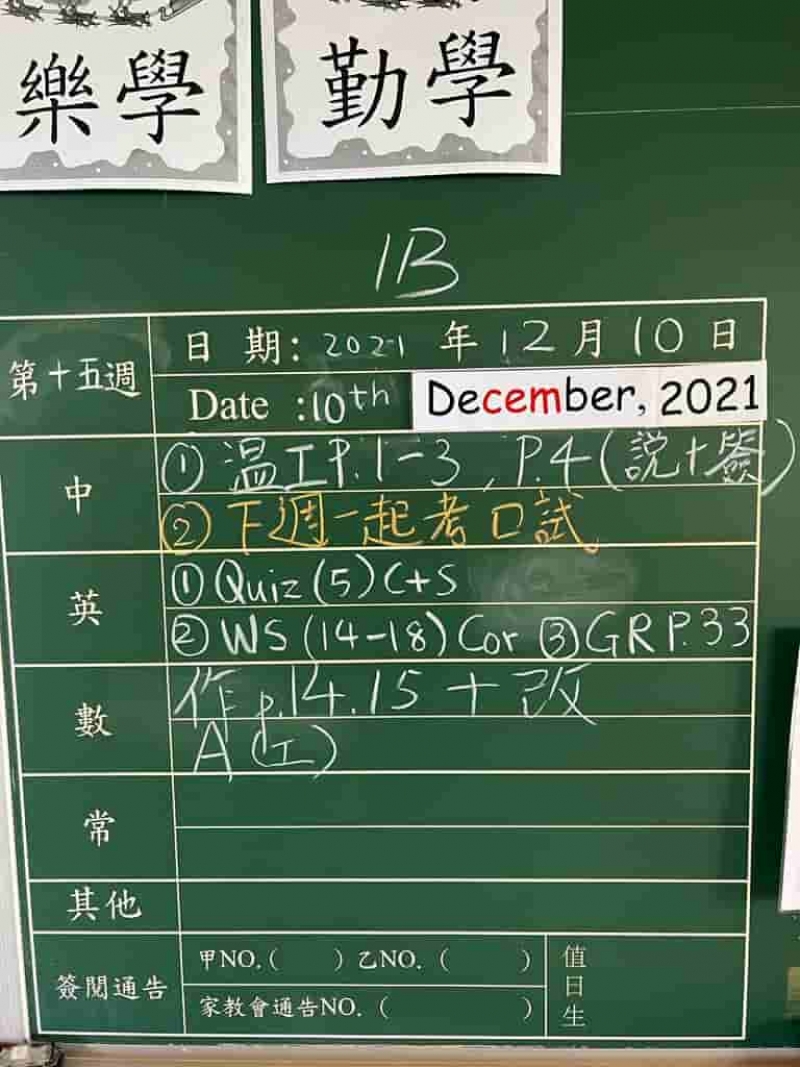 樂學
勤學
1B
第十五週
日 期: 2021 年 12 月 10 日
Date :10th December, 2021
中
① 温工P.1-3, P.4(説+簽)
② 下週一起考口試。
英
① Quiz(5)C+S
② WS(14-18)Cor ③ GR P.33
數
作p.14.15+改
A(工)
常
其他
簽閱通告
甲NO.( ) 乙NO.( )
家教會通告NO.( )
值日生